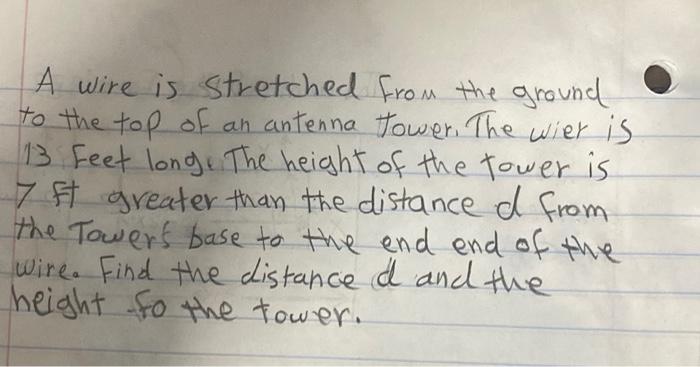 A wire is stretched from the ground
to the top of an antenna tower. The wier is
13 Feet long. The height of the tower is
7 ft greater than the distance d from
the Tower's base to the end end of the
wire. Find the distance d and the
height fo the tower.